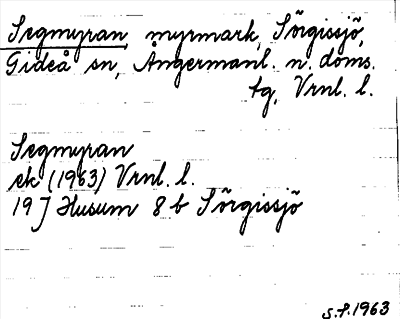 Segmyran, myrmark, Sörgissjö,
Gideå sn, Ångermanl. n. doms.
tg, Vrnl. l.
Segmyran
ek (1963) Vrnl. l.
19 J Husum 8 b Sörgissjö
S.P. 1963